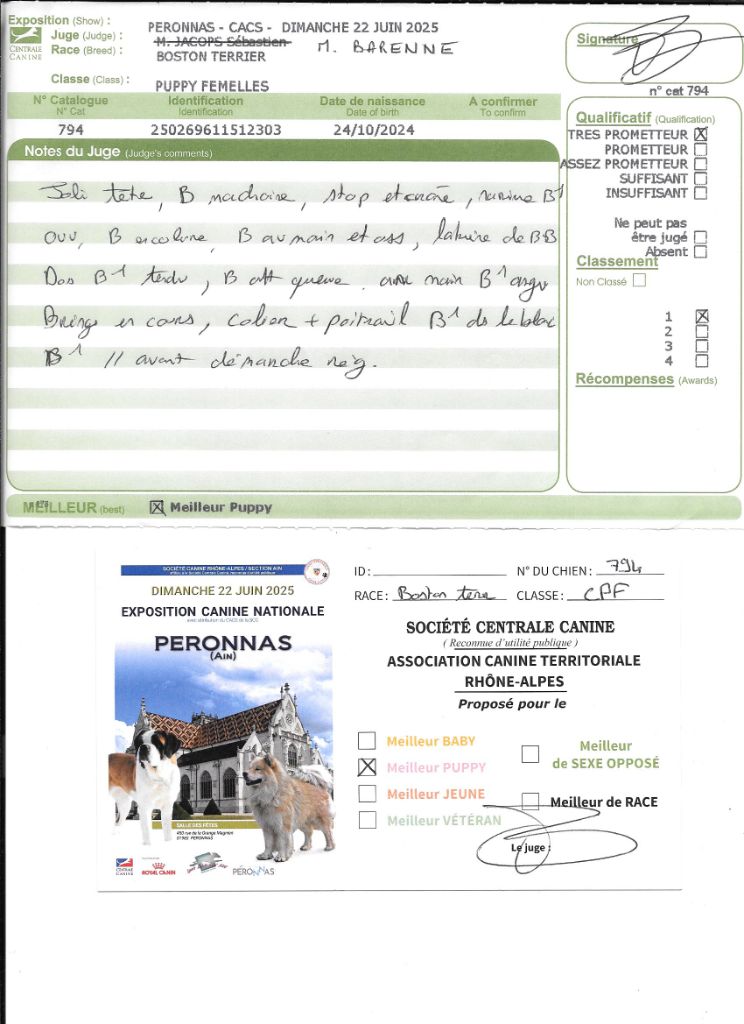 Exposition (Show) : PERONNAS - CACS - DIMANCHE 22 JUIN 2025
Juge (Judge) : M. JACOPS Sébastien M. BARENNE
Race (Breed) : BOSTON TERRIER
Classe (Class) : PUPPY FEMELLES
CENTRALE CANINE
Signature
n° cat 794
N° Catalogue Identification Date de naissance A confirmer
N° Cat Identification Date of birth To confirm
794 250269611512303 24/10/2024
Notes du Juge (Judge's comments)
Joli tete, B machoire, stop et crâne,
ouv, B encolure, B av main et oss, de BB
Dos B⁻¹ tendu, B att queue. main B⁻¹ angu
Bringé en cours, colier + poitrail B⁻¹ ds le blanc
B⁻¹ // avant démarche rég.
Qualificatif (Qualification)
TRES PROMETTEUR
PROMETTEUR
ASSEZ PROMETTEUR
SUFFISANT
INSUFFISANT
Ne peut pas
être jugé
Absent
Classement
Non Classé
1
2
3
4
Récompenses (Awards)
MEILLEUR (best) Meilleur Puppy
SOCIÉTÉ CANINE RHÔNE-ALPES / SECTION AIN
DIMANCHE 22 JUIN 2025
EXPOSITION CANINE NATIONALE
avec attribution du CACS de la SCC
PERONNAS
(AIN)
SALLE DES FÊTES
450 rue de la Grange Magnien
01960 PERONNAS
CENTRALE CANINE
ROYAL CANIN
PÉRONNAS
ID : N° DU CHIEN : 794
RACE : Boston terrier CLASSE : CPF
SOCIÉTÉ CENTRALE CANINE
( Reconnue d'utilité publique )
ASSOCIATION CANINE TERRITORIALE
RHÔNE-ALPES
Proposé pour le
Meilleur BABY
Meilleur PUPPY
Meilleur JEUNE
Meilleur VÉTÉRAN
Meilleur
de SEXE OPPOSÉ
Meilleur de RACE
Le juge :